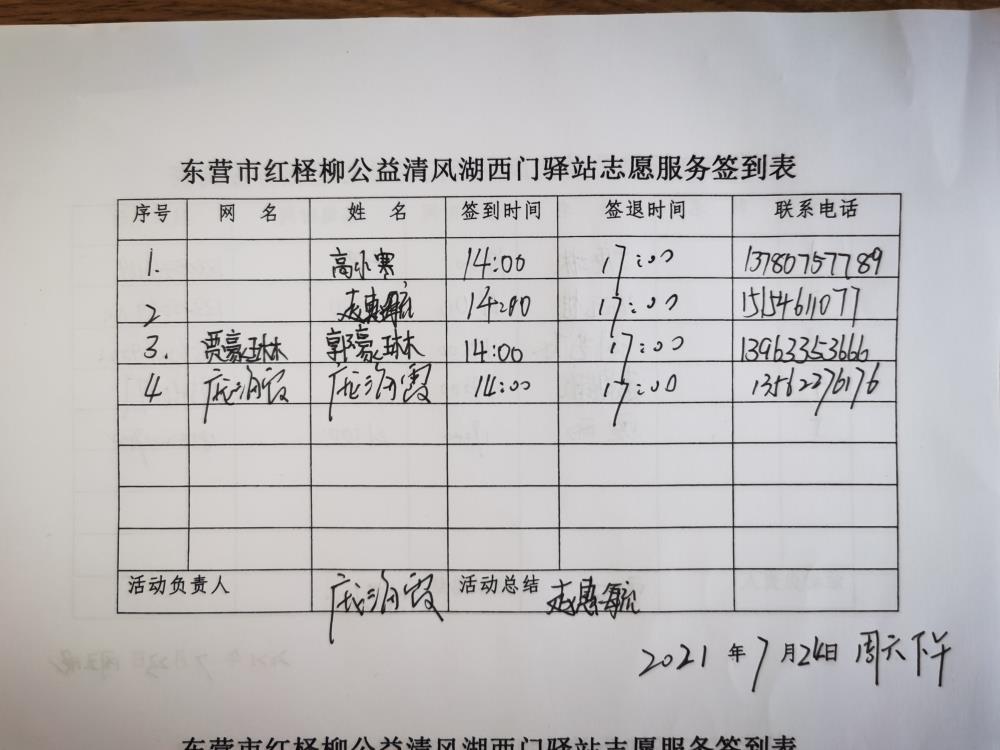 东营市红柽柳公益清风湖西门驿站志愿服务签到表
序号 网 名 姓 名 签到时间 签退时间 联系电话
1. 高小寒 14:00 17:00 13780757789
2 赵惠航 14:00 17:00 15154611077
3. 贾豪琳 郭豪琳 14:00 17:00 13963353666
4 庞海霞 庞海霞 14:00 17:00 13562276176
活动负责人 庞海霞 活动总结 赵惠航
2021年7月24日 周六下午
东营市红柽柳公益清风湖西门驿站志愿服务签到表